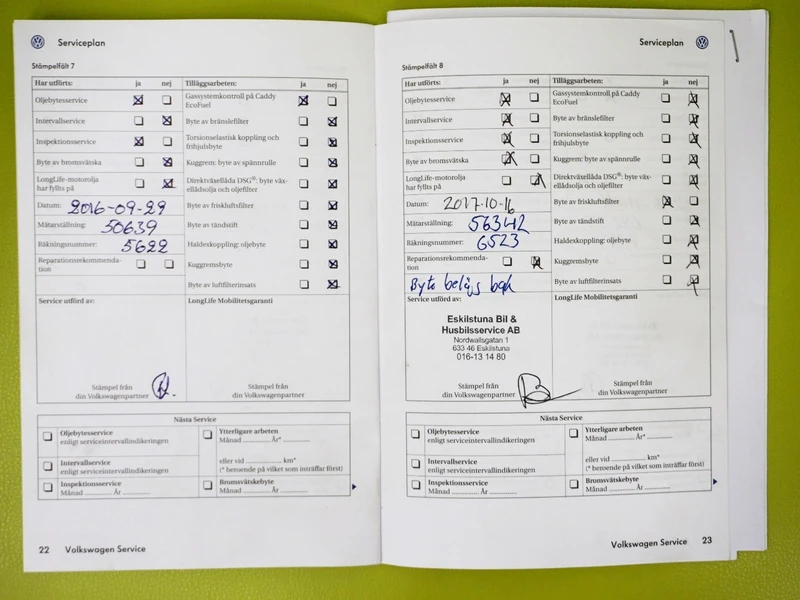 Serviceplan
Stämpelfält 7
Har utförts: ja nej Tilläggsarbeten: ja nej
Oljebytesservice Gassystemkontroll på Caddy
EcoFuel
Intervallservice Byte av bränslefilter
Inspektionsservice Torsionselastisk koppling och
frihjulsbyte
Byte av bromsvätska Kuggrem: byte av spännrulle
LongLife-motorolja Direktväxellåda DSG®: byte väx-
har fyllts på ellådsolja och oljefilter
Datum: 2016-09-29 Byte av friskluftsfilter
Mätarställning: 50639 Byte av tändstift
Räkningsnummer: 5622 Haldexkoppling: oljebyte
Reparationsrekommenda- Kuggremsbyte
tion
Byte av luftfilterinsats
Service utförd av: LongLife Mobilitetsgaranti
Stämpel från Stämpel från
din Volkswagenpartner din Volkswagenpartner
Nästa Service
Oljebytesservice Ytterligare arbeten
enligt serviceintervallindikeringen Månad .......... År* ..........
Intervallservice eller vid .......... km*
enligt serviceintervallindikeringen (* beroende på vilket som inträffar först)
Inspektionsservice Bromsvätskebyte
Månad .......... År .......... Månad .......... År ..........
22 Volkswagen Service
Serviceplan
Stämpelfält 8
Har utförts: ja nej Tilläggsarbeten: ja nej
Oljebytesservice Gassystemkontroll på Caddy
EcoFuel
Intervallservice Byte av bränslefilter
Inspektionsservice Torsionselastisk koppling och
frihjulsbyte
Byte av bromsvätska Kuggrem: byte av spännrulle
LongLife-motorolja Direktväxellåda DSG®: byte väx-
har fyllts på ellådsolja och oljefilter
Datum: 2017-10-16 Byte av friskluftsfilter
Mätarställning: 56342 Byte av tändstift
Räkningsnummer: 6523 Haldexkoppling: oljebyte
Reparationsrekommenda- Kuggremsbyte
tion
Byte belägs bak Byte av luftfilterinsats
Service utförd av: LongLife Mobilitetsgaranti
Eskilstuna Bil &
Husbilsservice AB
Nordwallsgatan 1
633 46 Eskilstuna
016-13 14 80
Stämpel från Stämpel från
din Volkswagenpartner din Volkswagenpartner
Nästa Service
Oljebytesservice Ytterligare arbeten
enligt serviceintervallindikeringen Månad .......... År* ..........
Intervallservice eller vid .......... km*
enligt serviceintervallindikeringen (* beroende på vilket som inträffar först)
Inspektionsservice Bromsvätskebyte
Månad .......... År .......... Månad .......... År ..........
Volkswagen Service 23